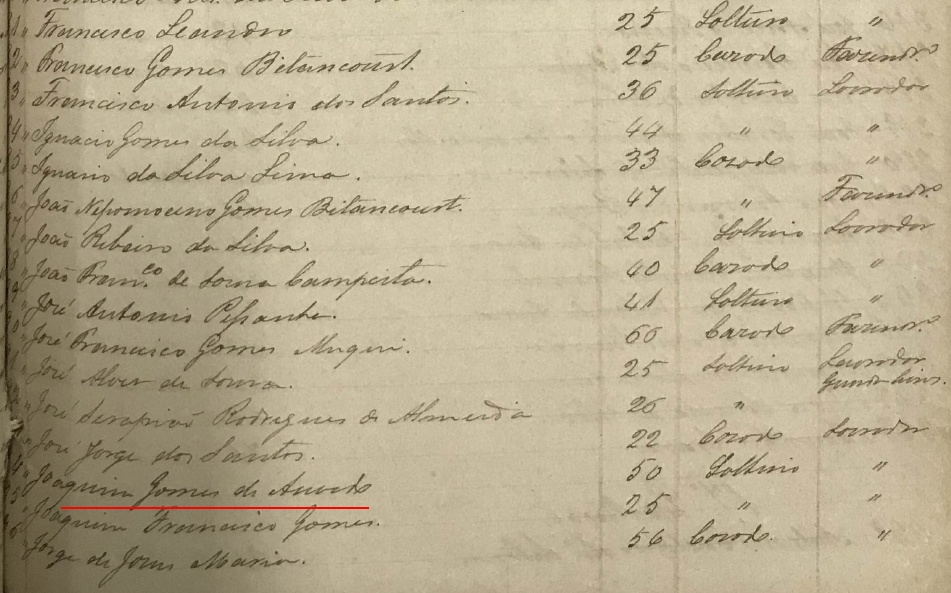 Francisco Leandro 25 Solteiro "
Francisco Gomes Bitancourt. 25 Cazado Fazendr.º
Francisco Antonio dos Santos. 36 Solteiro Lavrador
Ignacio Gomes da Silva. 44 " "
Ignacio da Silva Lima. 33 Cazado "
João Nepomoceno Gomes Bitancourt. 47 " Fazendr.º
João Ribeiro da Silva. 25 Solteiro Lavrador
João Fran.co de Souza Campista. 40 Cazado "
José Antonio Pessanha. 41 Solteiro "
José Francisco Gomes Muqui. 60 Cazado Fazendr.º
José Alves de Souza. 25 Solteiro Lavrador
José Serapião Rodrigues de Almeida 26 " Guarda livros.
José Jorge dos Santos. 22 Cazado Lavrador
Joaquim Gomes de Azevedo 50 Solteiro "
Joaquim Francisco Gomes. 25 " "
Jorge de Jesus Maria. 56 Cazado. "